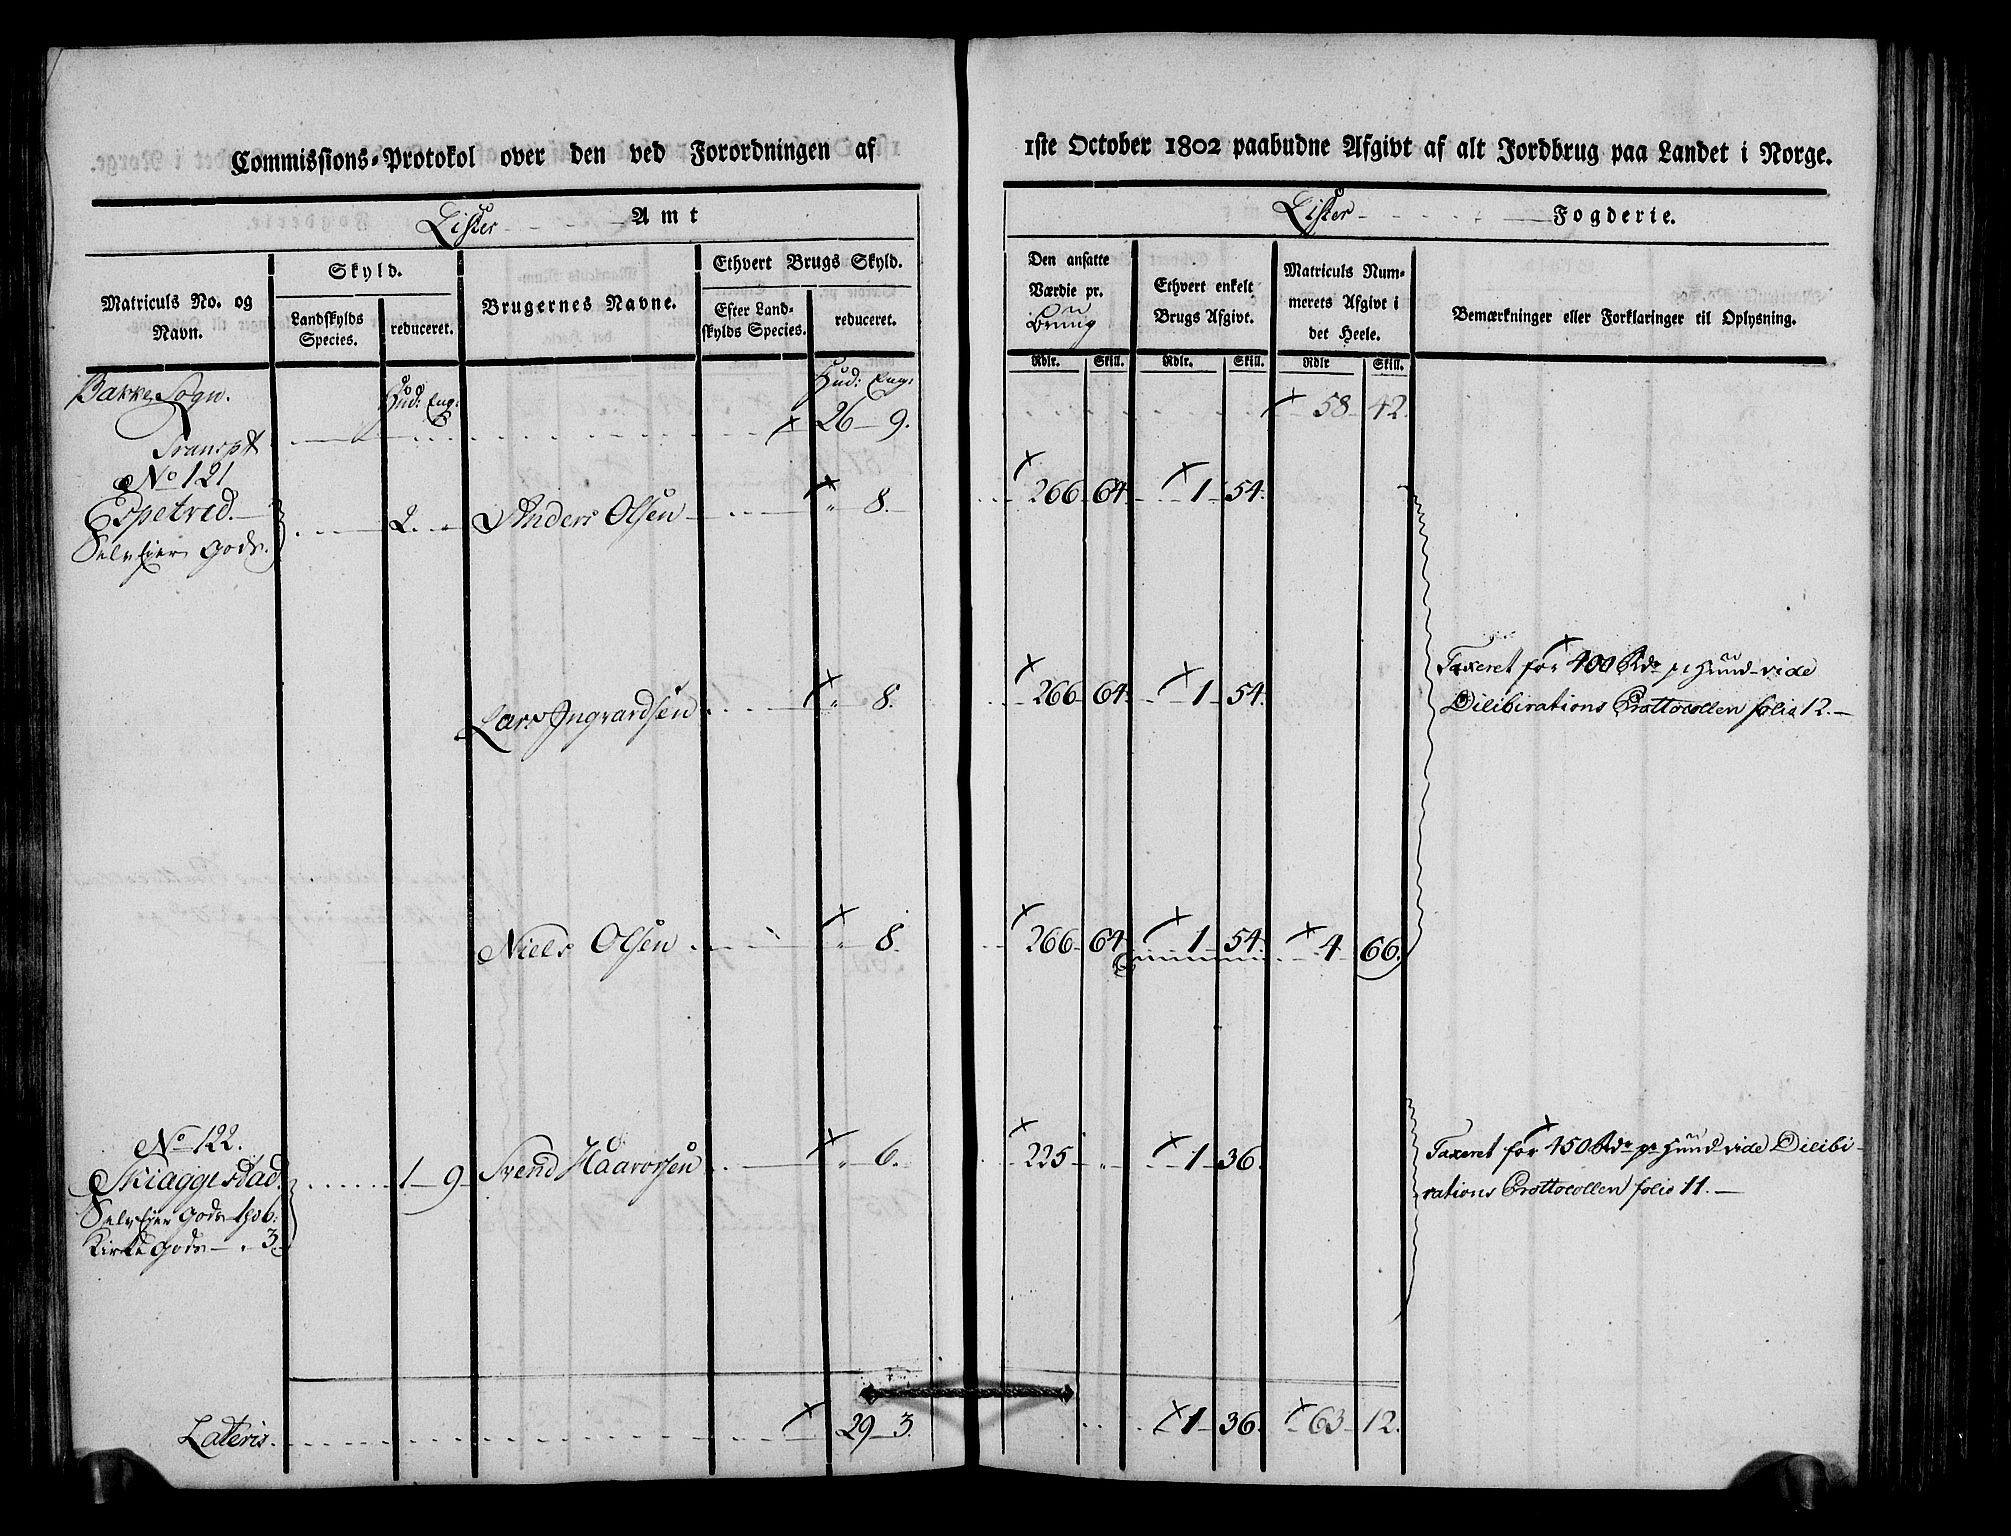 Commissions-Protokol over den ved Forordningen af 1ste October 1802 paabudne Afgivt af alt Jordbrug paa Landet i Norge.
Lister Amt
Lister Fogderie.
Matriculs No. og Navn.
Skyld.
Landskylds Species.
reduceret.
Brugernes Navne.
Ethvert Brugs Skyld.
Efter Landskylds Species.
reduceret.
Den ansatte Værdie pr. Brug
Ethvert enkelt Brugs Afgivt.
Matriculs Nummerets Afgivt i det Heele.
Bemærkninger eller Forklaringer til Oplysning.
Rdlr. Skill. Rdlr. Skill. Rdlr Skill.
Bakke Sogn. Hud: Eng: Hud: Eng:
Transpt 26 9. 58 42.
No 121
Espetved. 2. Anders Olsen 8. 266 64. 1 54.
Selv Eier Gods.
Lars Ingvardsen 8. 266 64. 1 54. Taxeret for 400 Rdr pr Huud vide
Dilibirations Prottocollen folio 12.
Niels Olsen 8. 266 64 1 54. 4 66.
No 122.
Skiaggestad. 1 9 Svend Haavorsen 6. 225 1 36. Taxeret for 450 Rdr pr Huud vide Dilibi-
Selv Eier Gods 1h 6: rations Prottocollen folio 11.
Kirke Gods 3
Lateris. 29 3. 1 36. 63 12.